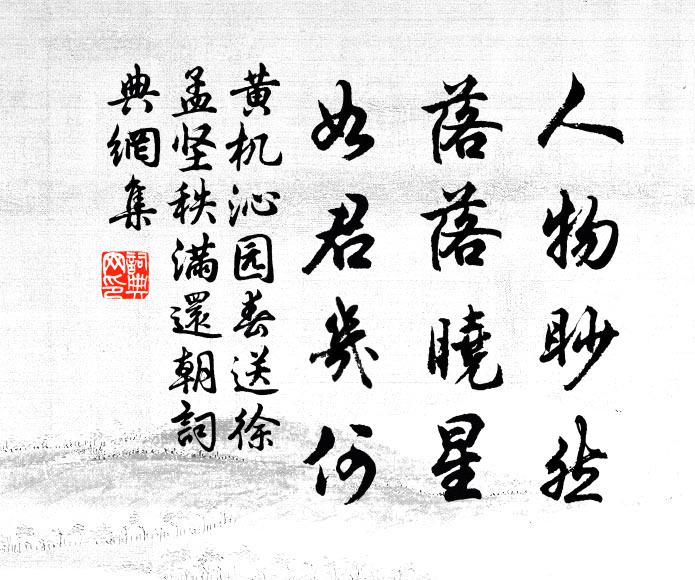 人物眇然
落落曉星
如君幾何
黄机沁园春送徐
孟坚秩满還朝詞
典網集
詞典网印